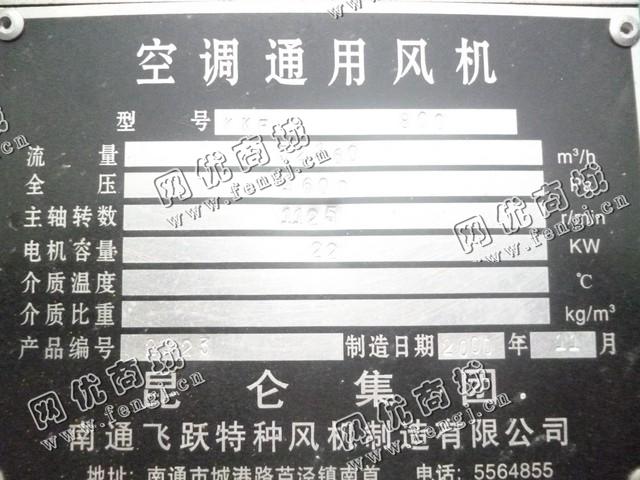 空调通用风机
型号 KKF 800
流量 m³/h
全压 1600 Pa
主轴转数 1125 r/min
电机容量 22 KW
介质温度 ℃
介质比重 kg/m³
产品编号 制造日期 2000 年 11 月
昆仑集团
南通飞跃特种风机制造有限公司
地址: 南通市城港路芦泾镇南首 电话: 5564855
网优商城
www.fengj.cn
网优商城
www.fengj.cn
网优商城
www.fengj.cn
网优商城
www.fengj.cn
网优商城
www.fengj.cn